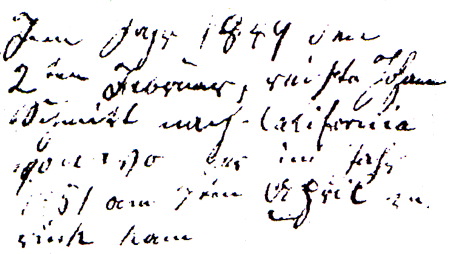 Im Jahr 1849 den
2ten Februar, reiste Johann
Schmitt nach California
von wo er im Jahr
1851 am 7ten April zu
rück kam